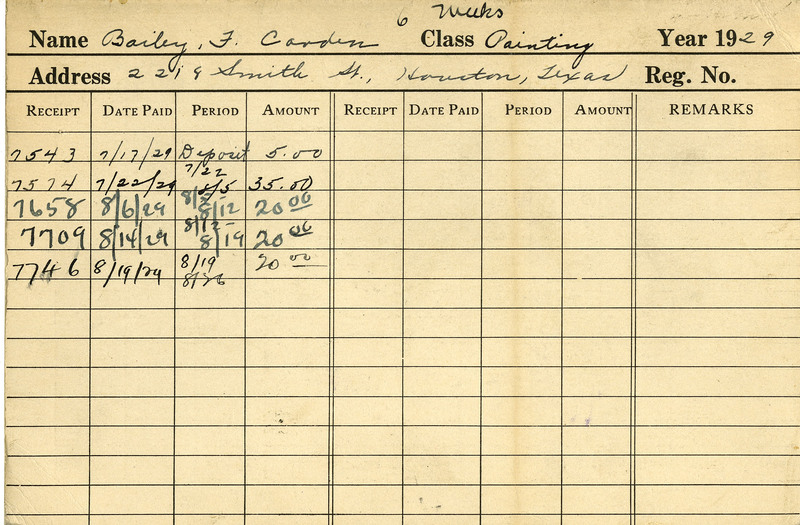 6 Weeks
Name Bailey, F. Carden Class Painting Year 1929
Address 2219 Smith St., Houston, Texas Reg. No.
RECEIPT DATE PAID PERIOD AMOUNT RECEIPT DATE PAID PERIOD AMOUNT REMARKS
7543 7/17/29 Deposit 5.00
7/22
7574 7/22/29 8/5 35.00
8/5
7658 8/6/29 8/12 20 00
8/12-
7709 8/14/29 8/19 20 00
7746 8/19/29 8/19 20 00
8/26